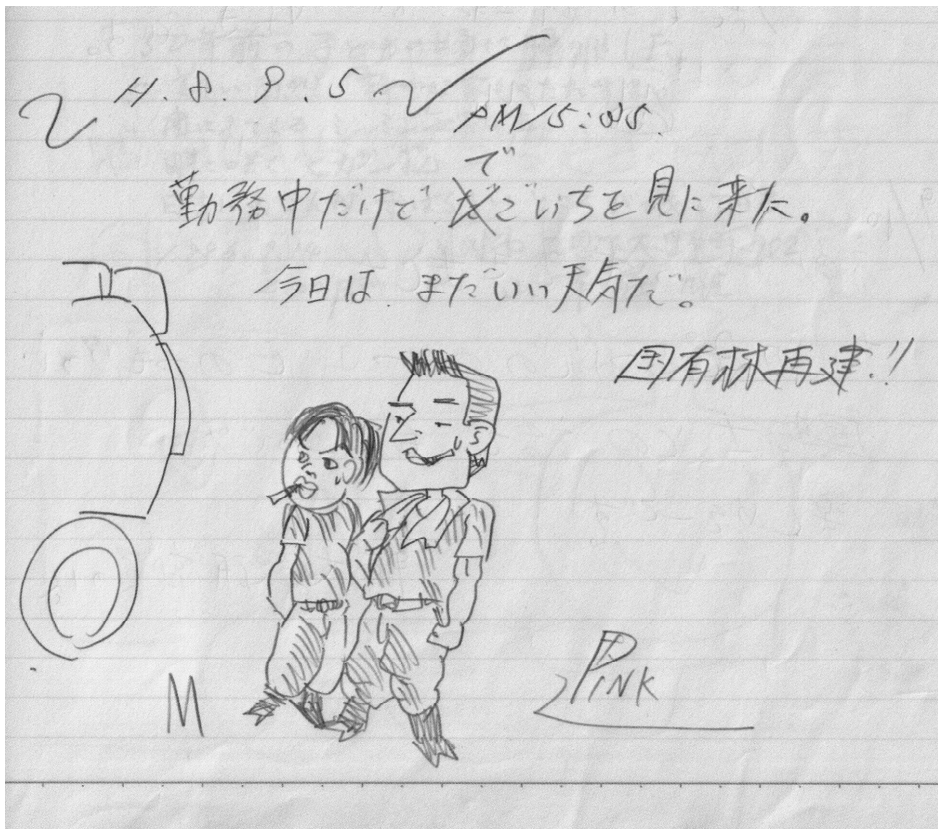 H.8.9.5
PM15:05.
で
勤務中だけどごいちを見に来た。
今日は、まだいい天気だ。
国有林再建!!
M
PINK